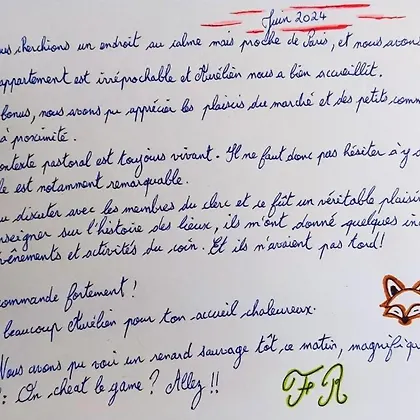 Juin 2024
us cherchions un endroit au calme mais proche de Paris, et nous avons
appartement est irréprochable et Aurélien nous a bien accueillit.
bonus, nous avons pu apprécier les plaisirs du marché et des petits comm
à proximité.
ontexte pastoral est toujours vivant. Il ne faut donc pas hésiter à y a
le est notamment remarquable.
u discuter avec les membres du clerc et ce fût un véritable plaisir
nseigner sur l'histoire des lieux, ils m'ont donné quelques in
événements et activités du coin. Et ils n'avaient pas tord!
commande fortement!
beaucoup Aurélien pour ton accueil chaleureux.
Nous avons pu voir un renard sauvage tôt, ce matin, magnifique
: On cheat le game? Allez!!
FR